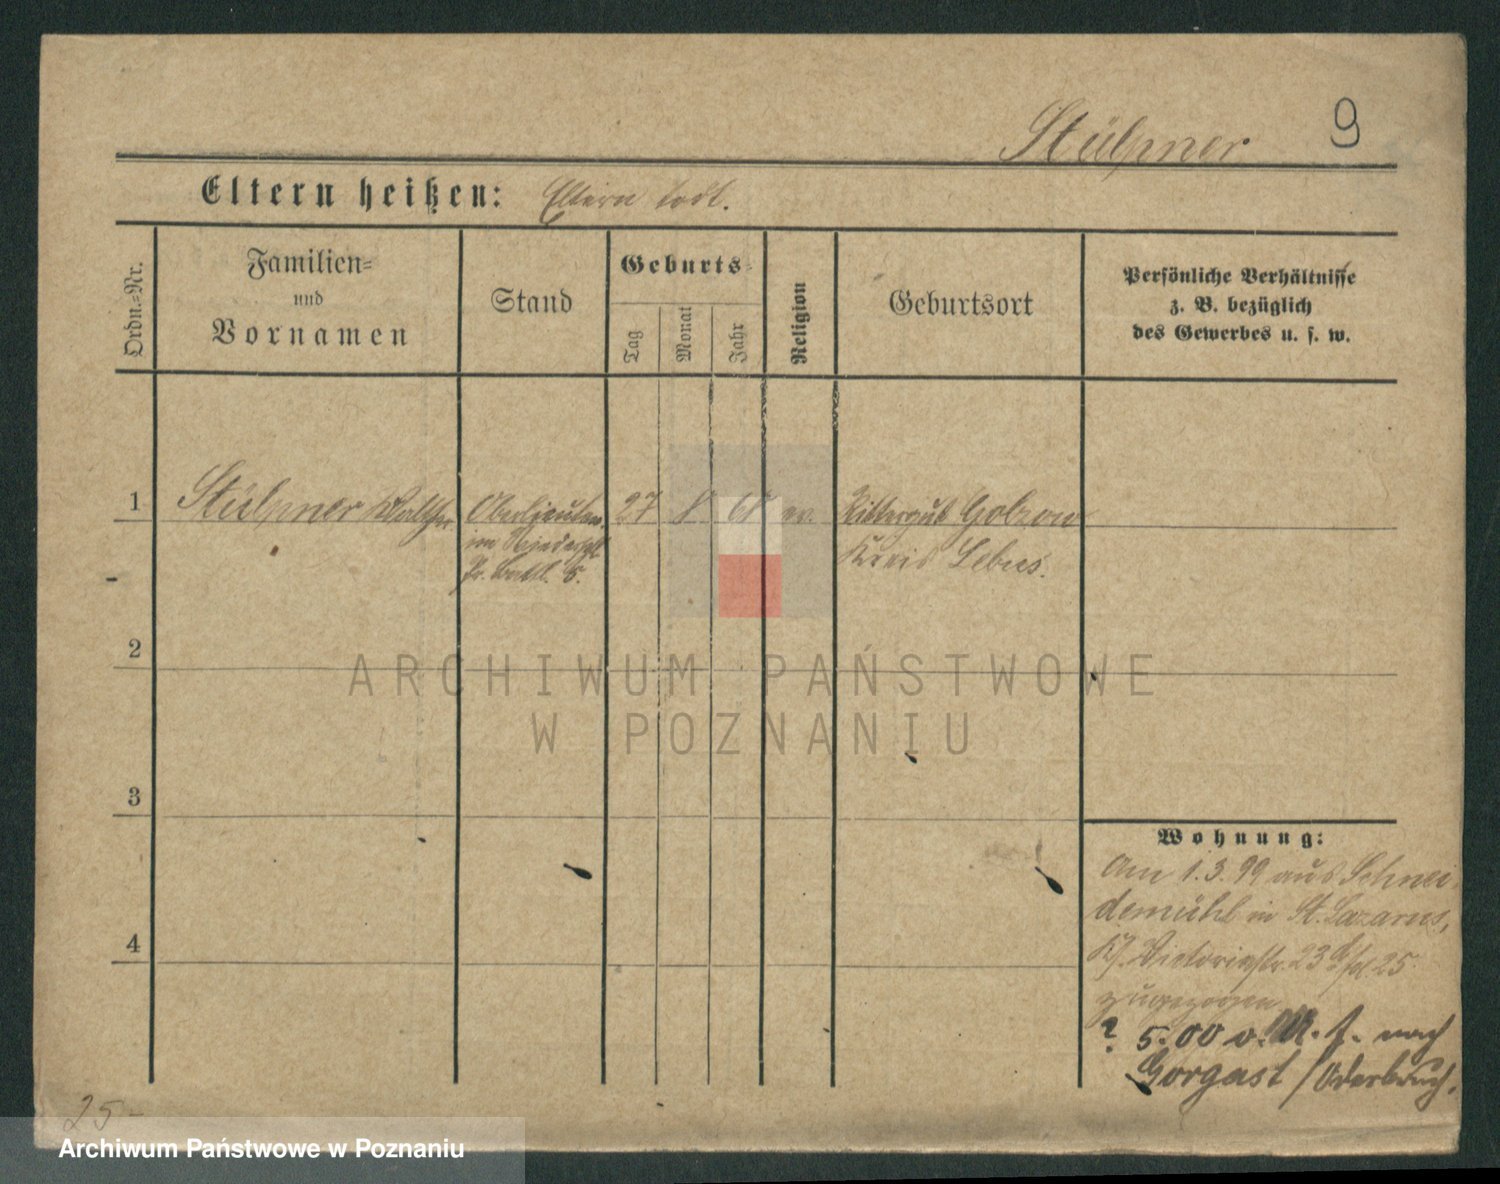 Stülpner 9
Eltern heißen: Eltern todt.
Ordn.-Nr.
Familien-
und
Vornamen
Stand
Geburts-
Tag
Monat
Jahr
Religion
Geburtsort
Persönliche Verhältnisse
z. B. bezüglich
des Gewerbes u. s. w.
1 Stülpner Walther Oberlieuten. 27 8 68 ev. Rittergut Golzow
im
Kreis Lebus.
2
3
4
Wohnung:
Am 1.3.99 aus Schnei-
demühl in St. Lazarus,
Victoriastr. 23 25
zugezogen
? 5.00 v. nach
Gorgast / Oderbruch.
25
ARCHIWUM PAŃSTWOWE
W POZNANIU
Archiwum Państwowe w Poznaniu